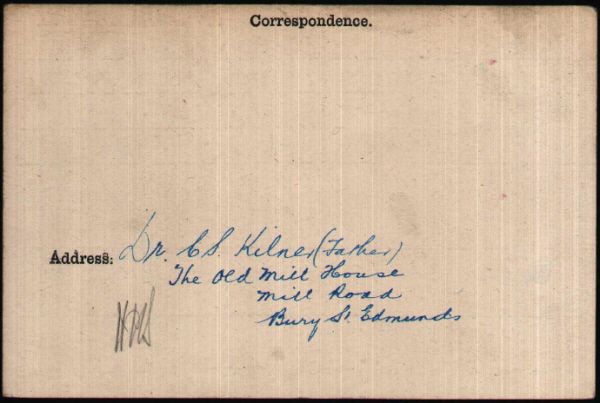 Correspondence.
Address: Dr. C S. Kilner (Father)
The Old Mill House
Mill Road
Bury St. Edmunds